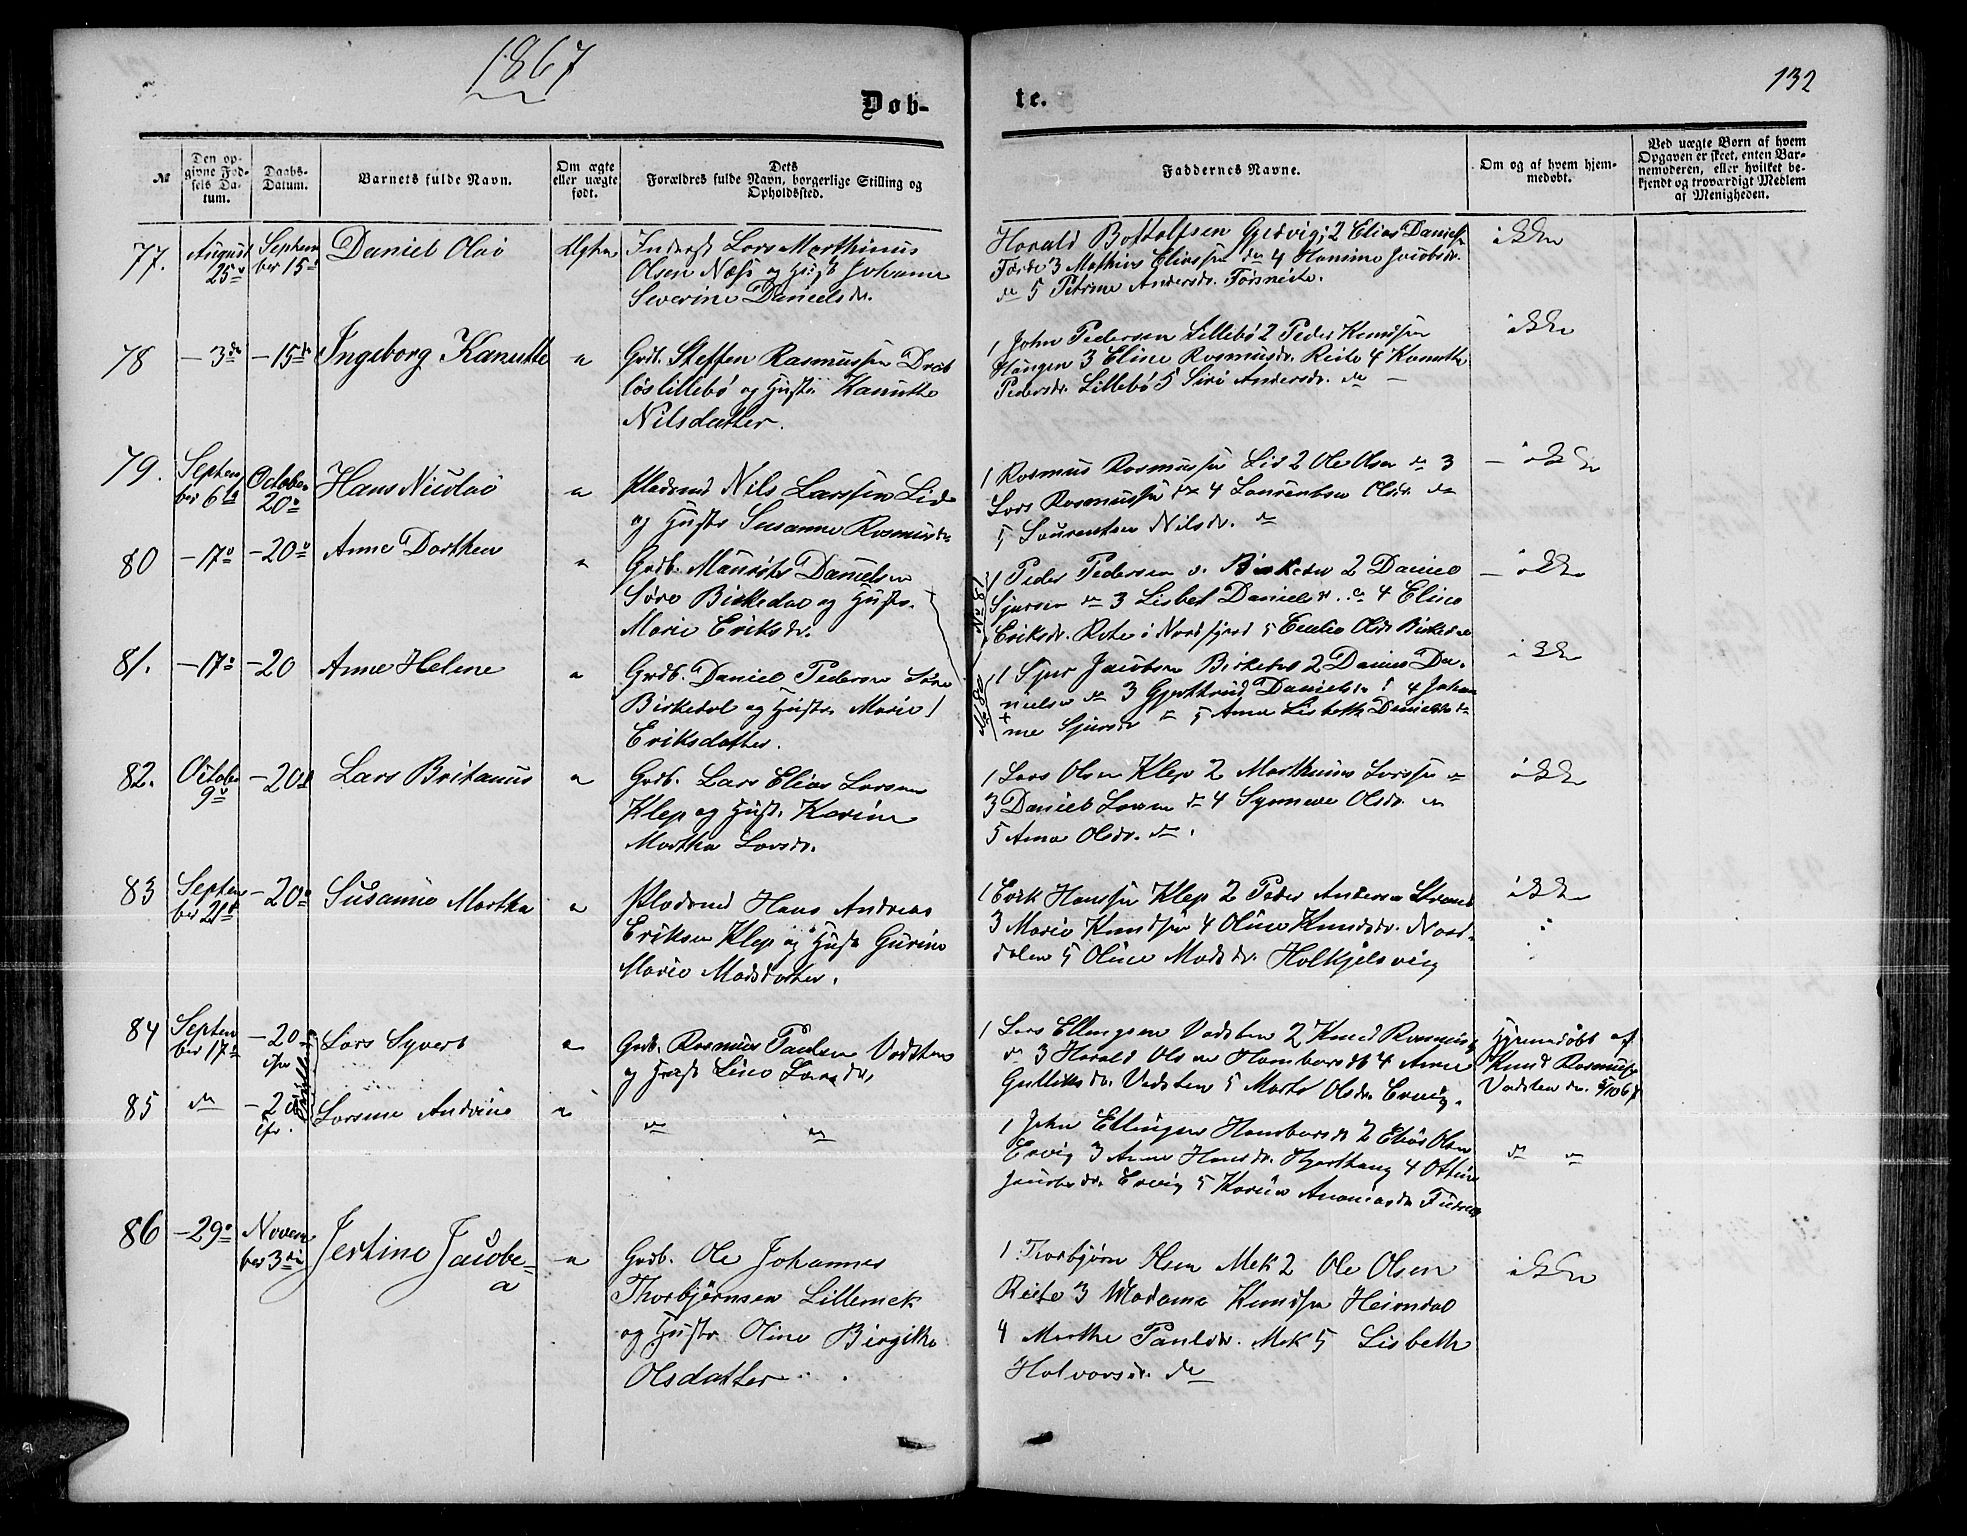 1867
132
Døb-
te.
№
Den op-
givne Fød-
sels Da-
tum.
Daabs-
Datum.
Barnets fulde Navn.
Om ægte
eller uægte
født.
Dets
Forældres fulde Navn, borgerlige Stilling og
Opholdssted.
Faddernes Navne.
Om og af hvem hjem-
medøbt.
Ved uægte Børn af hvem
Opgaven er skeet, enten Bar-
nemoderen, eller hvilket be-
kjendt og troværdigt Medlem
af Menigheden.
77.
August
25
Septem
ber 15
Daniel Olai
Ægte
Lars Marthinus
Olsen Næss og Johanne
Severine Danielsdr.
Harald Bottolfsen 2 Elias Daniels
3 Mathias Eliassen do 4 Hansine Jacobsdr.
do 5 Petrine Andersdr.
ikke
78
– 3de
– 15de
Ingeborg Kanutte
Grdb. Steffen Rasmussen
Lillebø og Hustr. Kanutte
Nilsdatter.
1 John Pedersen Lillebø 2 Peder Knudsen
Haugen 3 Eline Rasmusdr. Reite 4 Kanutte
Pedersdr. Lillebø 5 Siri Andersdr. do –
ikke
79.
Septem
ber 6te
October
20
Hans Nicolai
Nils Larssen Lid
og Hustr Susanne Rasmusdr
1 Rasmus Rasmussen Lid 2 Ole Olsen do 3
Lars Rasmussen do 4 Laurentse Olsdr. do
5 Laurentse Nilsdr. do
– ikke
80
– 17
– 20
Anne Dorthea
Grdb. Maurits Danielsen
Birkedal og Hustr.
Marie Eriksdr.
No 81
1 Peder Pedersen Birkedal 2 Daniel
Sjursen do 3 Lisbet Danielsdr. do 4 Eline
Eriksdr. i Nordfjord 5 Olsdr Birkedal
– ikke
81.
– 17
– 20
Anne Helene
Grdb. Daniel Pedersen
Birkedal og Hustr. Marie
Eriksdatter.
No 80
1 Sjur Jacobsen Birkedal 2 Daniel Da-
nielsen do 3 Gjerttrud Danielsdr 4 Johan
ne Sjursdr do 5 Ane Lisbeth Danielsdr do
ikke
82.
October
9
– 20
Lars Britanus
Grdb. Lars Elias Larsen
Klep og Hustr. Karine
Martha Larsdr.
1 Lars Olsen Klep 2 Marthinus Larssen do
3 Daniel Larsen do 4 Synneve Olsdr. do
5 Ane Olsdr. do.
ikke
83
Septem
ber 21
– 20
Susanne Martha
Hans Andreas
Eriksen Klep og Hustr Gurine
Marie Madsdatter.
1 Erik Hanssen Klep 2 Peder Andersen Strand
3 Marie Knudsen 4 Oline Knudsdr. Nord-
dalen 5 Oline Madsdr. Holkjelsvig
ikke
84
Septem
ber 17
– 20
Tvillinger
Lars Syvert
Grdb. Rasmus Paulsen Vadsten
og Hustr Line Larsdr.
1 Lars Ellingsen Vadsten 2 Knud Rasmussen
do 3 Harald Olsen 4 Anne
Gulliksdr. Vadsten 5 Marte Olsdr. Ervig.
Hjemmedøbt af
Knud Rasmussen
Vadsten
85
do
– 20
Larsine Andrine
do do
1 John Ellingsen 2 Elias Olsen
Ervig 3 Anne Hansdr. 4
Jacobsdr. Ervig 5 Karen
do do
86
– 29
Novem
ber 3die
Jestine Jacobe-
a
Grdb. Ole Johannes
Thorbjørnsen Lillemek
og Hustr. Oline Birgitte
Olsdatter
1 Thorbjørn Olsen Mek 2 Ole Olsen
Reite 3 Madame Knudsen Heimdal
4 Marthe Paulsdr. Mek 5 Lisbeth
Halvorsdr. do
ikke